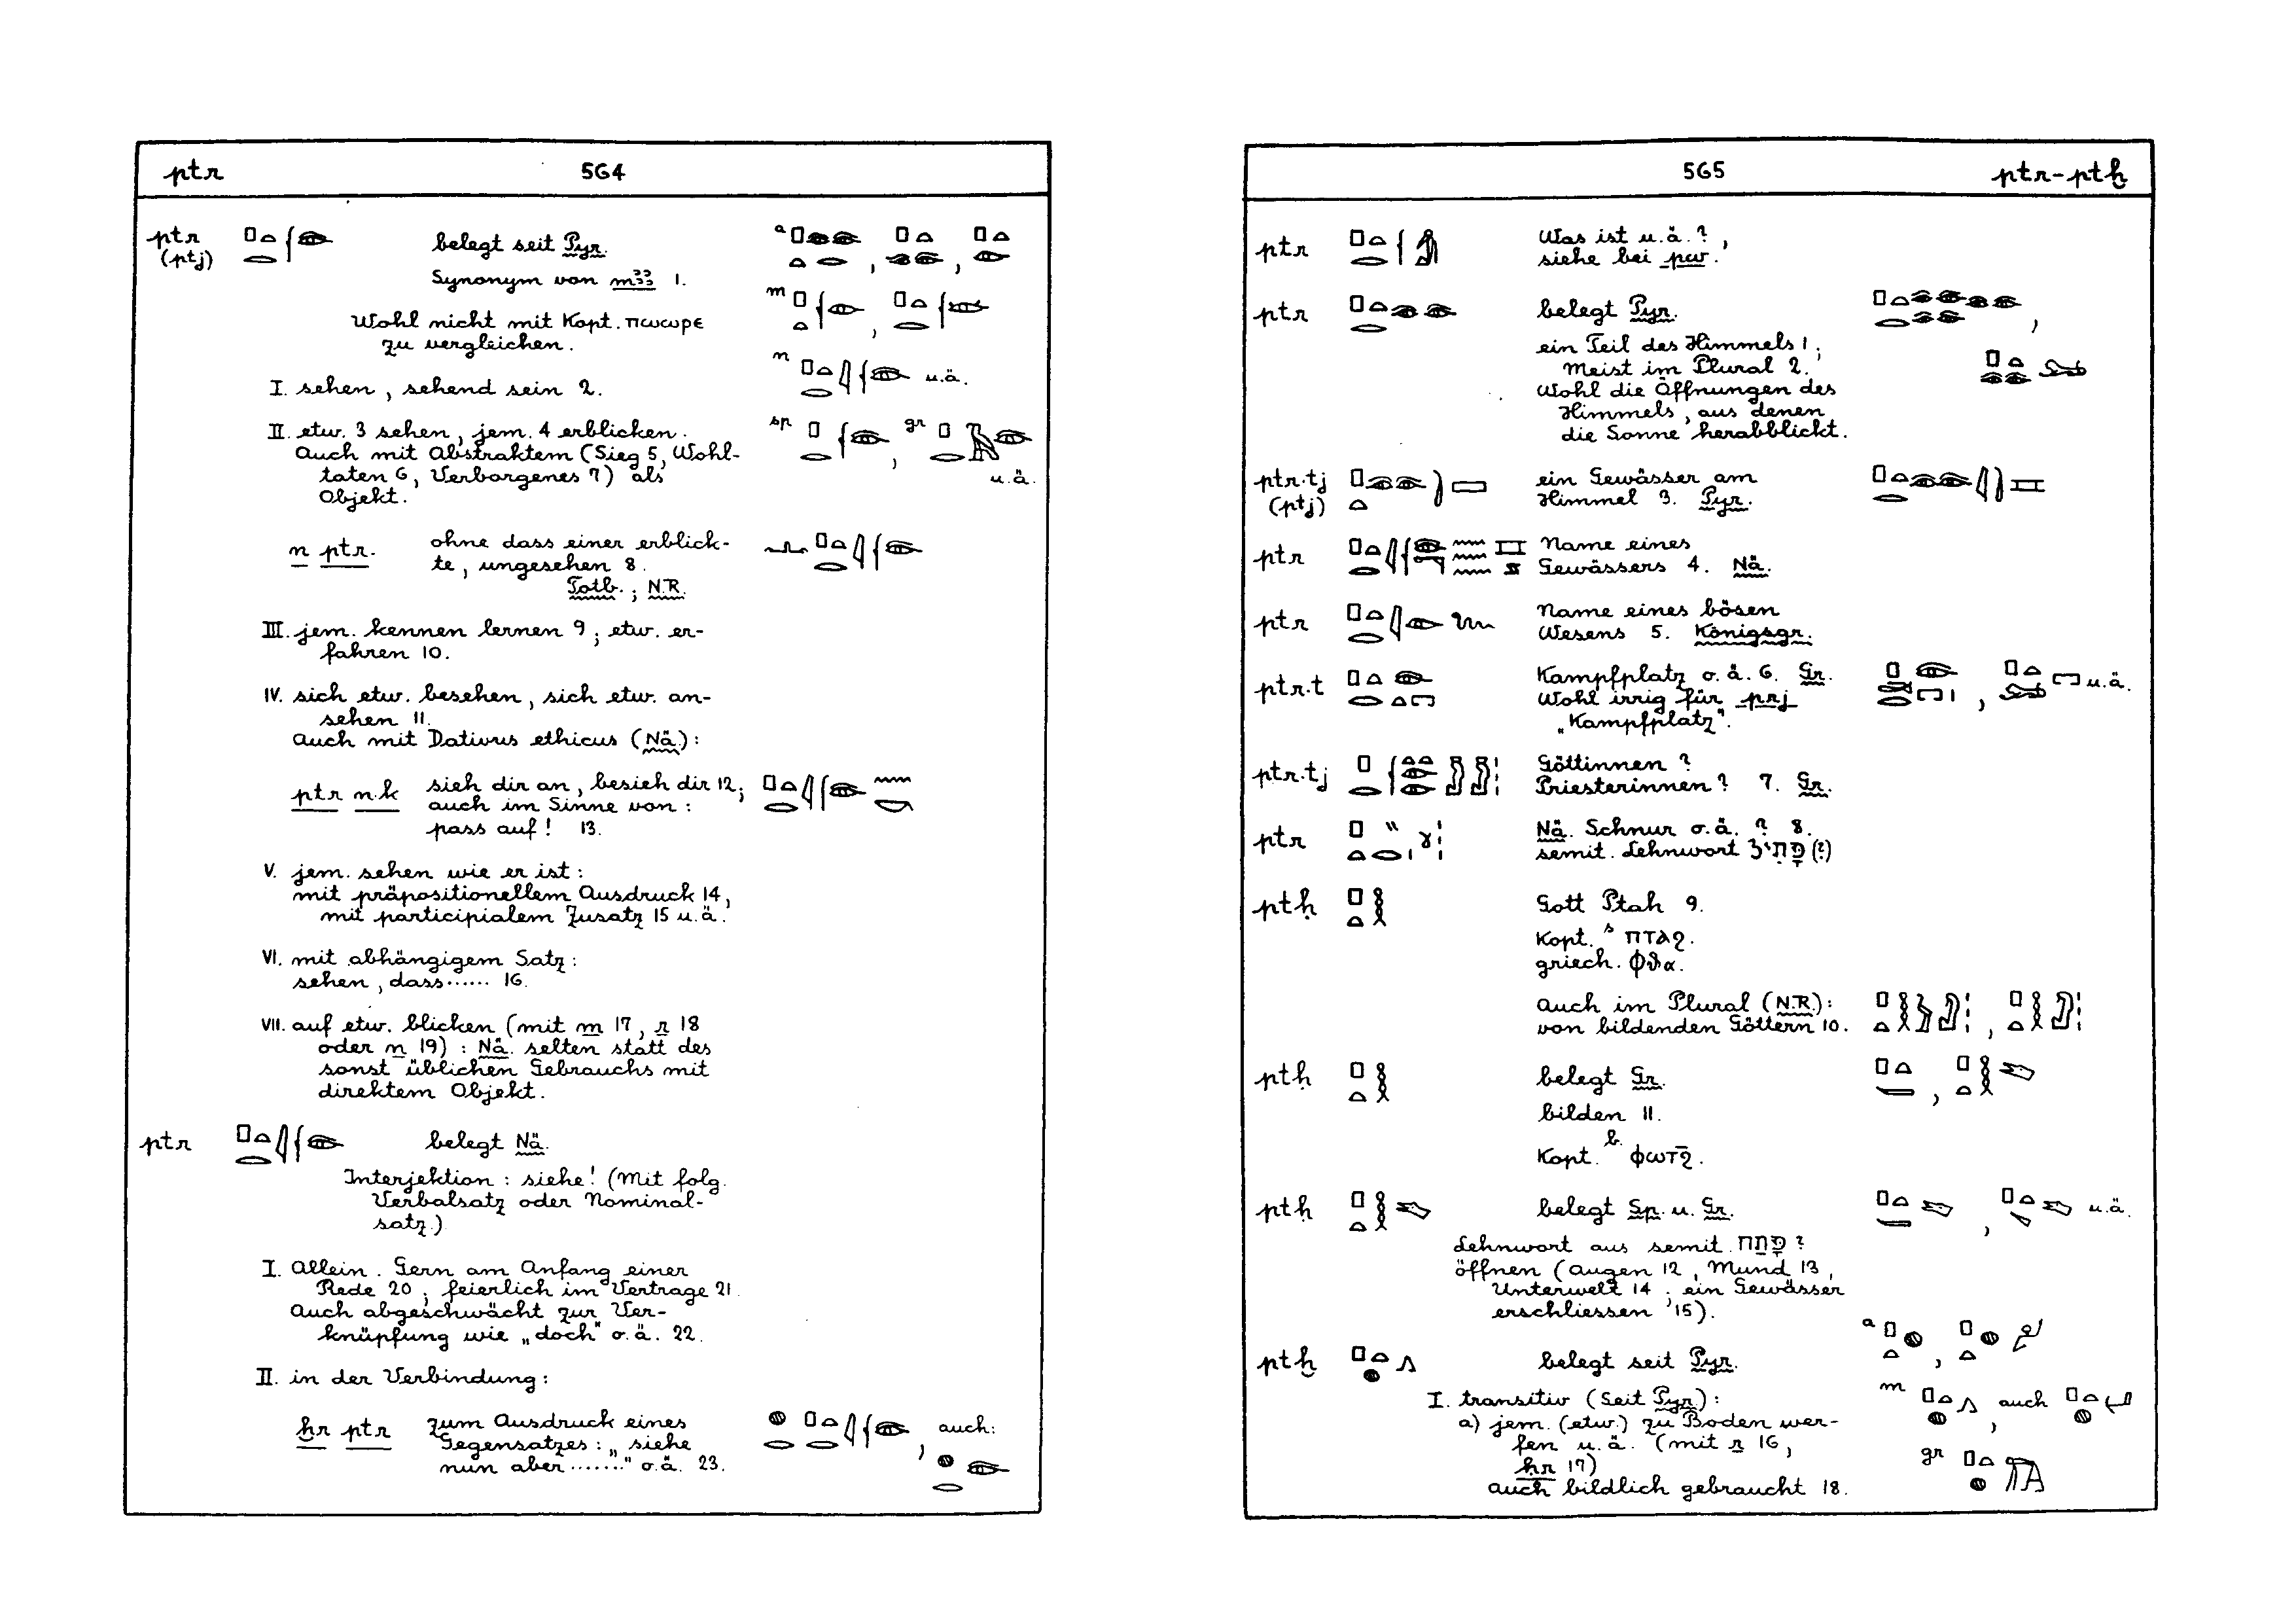 ptr 564
ptr
(ptj)
belegt seit Pyr.
Synonym von mꜣꜣ 1.
Wohl nicht mit Kopt. ⲡⲱⲱⲣⲉ
zu vergleichen.
a
m
n u.ä.
sp , gr
u.ä.
I. sehen, sehend sein 2.
II. etw. 3 sehen, jem. 4 erblicken.
Auch mit Abstraktem (Sieg 5, Wohl-
taten 6, Verborgenes 7) als
Objekt.
n ptr. ohne dass einer erblick-
te, ungesehen 8.
Totb.; N.R.
III. jem. kennen lernen 9; etw. er-
fahren 10.
IV. sich etw. besehen, sich etw. an-
sehen 11.
Auch mit Dativus ethicus (Nä.):
ptr n.k sieh dir an, besieh dir 12;
auch im Sinne von:
pass auf! 13.
V. jem. sehen wie er ist:
mit präpositionellem Ausdruck 14,
mit participialem Zusatz 15 u.ä.
VI. mit abhängigem Satz:
sehen, dass...... 16.
VII. auf etw. blicken (mit m 17, r 18
oder n 19): Nä. selten statt des
sonst üblichen Gebrauchs mit
direktem Objekt.
ptr belegt Nä.
Interjektion: siehe! (Mit folg.
Verbalsatz oder Nominal-
satz.)
I. Allein. Gern am Anfang einer
Rede 20; feierlich im Vertrage 21.
Auch abgeschwächt zur Ver-
knüpfung wie „doch" o.ä. 22.
II. in der Verbindung:
ḫr ptr zum Ausdruck eines
Gegensatzes: „siehe
nun aber......." o.ä. 23.
, auch:
565 ptr-ptḫ
ptr Was ist u.ä.?,
siehe bei pw.
ptr belegt Pyr.
ein Teil des Himmels 1;
meist im Plural 2.
Wohl die Öffnungen des
Himmels, aus denen
die Sonne herabblickt.
ptr.tj
(ptj)
ein Gewässer am
Himmel 3. Pyr.
ptr Name eines
Gewässers 4. Nä.
ptr Name eines bösen
Wesens 5. Königsgr.
ptr.t Kampfplatz o.ä. 6. Gr.
Wohl irrig für prj
„Kampfplatz".
u.ä.
ptr.tj Göttinnen?
Priesterinnen? 7. Gr.
ptr Nä. Schnur o.ä.? 8.
semit. Lehnwort פָּתִיל (?)
ptḥ Gott Ptah 9.
Kopt. s ⲡⲧⲁϩ.
griech. φθα.
Auch im Plural (N.R.):
von bildenden Göttern 10.
ptḥ belegt Gr.
bilden 11.
Kopt. b. ⲫⲱⲧϩ̄.
ptḥ belegt Sp. u. Gr. u.ä.
Lehnwort aus semit. פָּתַח?
öffnen (Augen 12, Mund 13,
Unterwelt 14; ein Gewässer
erschliessen 15).
ptḫ belegt seit Pyr.
a
m , auch
gr
I. transitiv (seit Pyr.):
a) jem. (etw.) zu Boden wer-
fen u.ä. (mit r 16,
ḥr 17)
auch bildlich gebraucht 18.